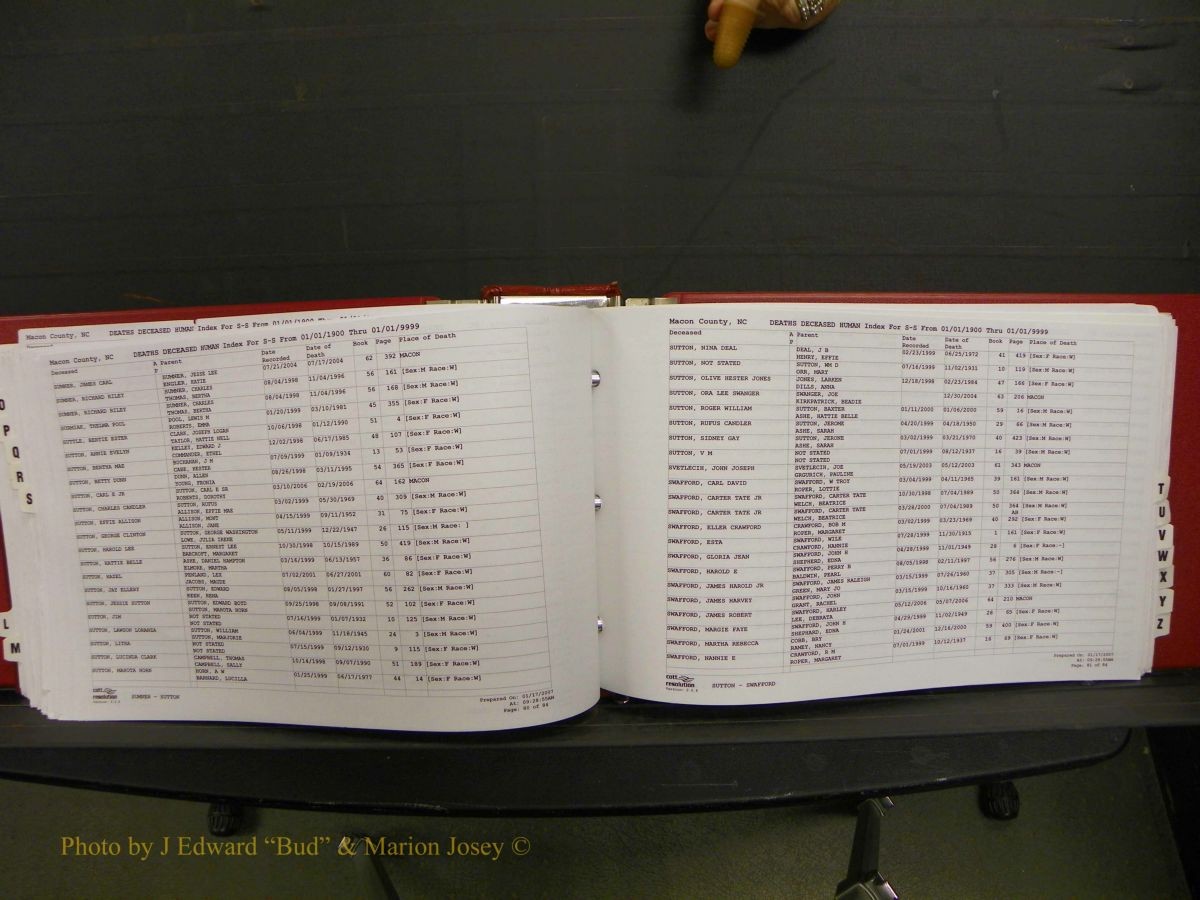 Macon County, NC DEATHS DECEASED HUMAN Index For S-S From 01/01/1900 Thru 01/01/9999
Macon County, NC DEATHS DECEASED HUMAN Index For S-S From 01/01/1900 Thru 01/01/9999
Deceased A Parent Date Recorded Date of Death Book Page Place of Death
P
SUMNER, JAMES CARL SUMNER, JESSE LEE 07/21/2004 07/17/2004 62 392 MACON
ENZLER, KATIE
SUMNER, RICHARD RILEY SUMNER, CHARLES 08/04/1998 11/04/1996 56 161 [Sex:M Race:W]
THOMAS, BERTHA
SUMNER, RICHARD RILEY SUMNER, CHARLES 08/04/1998 11/04/1996 56 168 [Sex:M Race:W]
THOMAS, BERTHA
THELMA POOL POOL, LEWIS M 01/20/1999 03/10/1981 45 355 [Sex:F Race:W]
ROBERTS, EMMA
SUTTLE, BERTIE ESTER CLARK, JOSEPH LOGAN 10/06/1998 01/12/1990 51 4 [Sex:F Race:W]
TAYLOR, HATTIE NELL
SUTTON, ANNIE EVELYN KELLEY, EDWARD J 12/02/1998 06/17/1985 48 107 [Sex:F Race:W]
COMMANDER, ETHEL
SUTTON, BERTHA MAE BUCHANAN, J M 07/09/1999 01/09/1934 13 53 [Sex:F Race:W]
CABE, HESTER
SUTTON, BETTY DUNN DUNN, ALLEN 08/26/1998 03/11/1995 54 365 [Sex:F Race:W]
YOUNG, FRONIA
SUTTON, CARL E JR SUTTON, CARL E SR 03/10/2006 02/19/2006 64 162 MACON
ROBERTS, DOROTHY
SUTTON, CHARLES CANDLER SUTTON, RUFUS 03/02/1999 05/30/1969 40 309 [Sex:M Race:W]
ALLISON, EFFIE MAE
SUTTON, EFFIE ALLISON ALLISON, MONT 04/15/1999 09/11/1952 31 75 [Sex:F Race:W]
ALLISON, JANE
SUTTON, GEORGE CLINTON SUTTON, GEORGE WASHINGTON 05/11/1999 12/22/1947 26 115 [Sex:M Race: ]
LOWE, JULIA IRENE
SUTTON, HAROLD LEE SUTTON, ERNEST LEE 10/30/1998 10/15/1989 50 419 [Sex:M Race:W]
BARCROFT, MARGARET
SUTTON, HATTIE BELLE ASHE, DANIEL HAMPTON 03/16/1999 06/13/1957 36 86 [Sex:F Race:W]
ELMORE, MARTHA
SUTTON, HAZEL PENLAND, LEE 07/02/2001 06/27/2001 60 82 [Sex:F Race:W]
JACOBS, MAUDE
SUTTON, JAY ELLERY SUTTON, EDWARD 08/05/1998 01/27/1997 56 262 [Sex:M Race:W]
RENA
SUTTON, JESSIE SUTTON SUTTON, EDWARD BOYD 09/25/1998 09/08/1991 52 102 [Sex:F Race:W]
SUTTON, MAROTA HORN
SUTTON, JIM NOT STATED 07/16/1999 01/07/1932 10 125 [Sex:M Race:W]
NOT STATED
SUTTON, LAWSON LORANZA SUTTON, WILLIAM 06/04/1999 11/18/1945 24 3 [Sex:M Race:W]
SUTTON, MARJORIE
SUTTON, LITHA NOT STATED 07/15/1999 09/12/1930 9 115 [Sex:F Race:W]
NOT STATED
SUTTON, LUCINDA CLARK CAMPBELL, THOMAS 10/14/1998 09/07/1990 51 189 [Sex:F Race:W]
CAMPBELL, SALLY
SUTTON, MAROTA HORN HORN, A W 01/25/1999 06/17/1977 44 14 [Sex:F Race:W]
BARNARD, LUCILLA
cott
resolution
SUMNER - SUTTON
Prepared On: 01/17/2007
At: 09:28:55AM
Page: 80 of 84
Macon County, NC DEATHS DECEASED HUMAN Index For S-S From 01/01/1900 Thru 01/01/9999
Deceased A Parent Date Recorded Date of Death Book Page Place of Death
P
SUTTON, NINA DEAL DEAL, J B 02/23/1999 06/25/1972 41 419 [Sex:F Race:W]
HENRY, EFFIE
SUTTON, NOT STATED SUTTON, WM D 07/16/1999 11/02/1931 10 119 [Sex:M Race:W]
ORR, MARY
SUTTON, OLIVE HESTER JONES JONES, LARKEN 12/18/1998 02/23/1984 47 166 [Sex:F Race:W]
DILLS, ANNA
SUTTON, ORA LEE SWANGER SWANGER, JOE 12/30/2004 63 206 MACON
KIRKPATRICK, BEADIE
SUTTON, ROGER WILLIAM SUTTON, BAXTER 01/11/2000 01/06/2000 59 16 [Sex:M Race:W]
ASHE, HATTIE BELLE
SUTTON, RUFUS CANDLER SUTTON, JEROME 04/20/1999 04/18/1950 29 66 [Sex:M Race:W]
ASHE, SARAH
SUTTON, SIDNEY GAY SUTTON, JEROME 03/02/1999 03/21/1970 40 423 [Sex:M Race:W]
ASHE, SARAH
SUTTON, V M NOT STATED 07/01/1999 08/12/1937 16 39 [Sex:M Race:W]
NOT STATED
SVETLECIH, JOHN JOSEPH SVETLECIN, JOE 05/19/2003 05/12/2003 61 343 MACON
GRGURICH, PAULINE
SWAFFORD, CARL DAVID SWAFFORD, W TROY 03/04/1999 04/11/1965 39 161 [Sex:M Race:W]
ROPER, LOTTIE
SWAFFORD, CARTER TATE JR SWAFFORD, CARTER TATE 10/30/1998 07/04/1989 50 364 [Sex:M Race:W]
WELCH, BEATRICE
SWAFFORD, CARTER TATE JR SWAFFORD, CARTER TATE 03/28/2000 07/04/1989 50 364 [Sex:M Race:W]
WELCH, BEATRICE
SWAFFORD, ELLER CRAWFORD CRAWFORD, BOB M 03/02/1999 03/23/1969 40 292 [Sex:F Race:W]
ROPER, MARGARET
SWAFFORD, ESTA SWAFFORD, WILE 07/28/1999 11/30/1915 1 161 [Sex:F Race:W]
CRAWFORD, HANNIE
SWAFFORD, GLORIA JEAN SWAFFORD, JOHN H 04/28/1999 11/01/1949 28 6 [Sex:F Race:-]
SHEPHERD, EDNA
SWAFFORD, HAROLD E SWAFFORD, PERRY B 08/05/1998 02/11/1997 56 276 [Sex:M Race:W]
BALDWIN, PEARL
SWAFFORD, JAMES HAROLD JR SWAFFORD, JAMES RALEIGH 03/15/1999 07/26/1960 37 305 [Sex:M Race:-]
GREEN, MARY JO
SWAFFORD, JAMES HARVEY SWAFFORD, JOHN 03/15/1999 10/16/1960 37 333 [Sex:M Race:W]
GRANT, RACHEL
SWAFFORD, JAMES ROBERT SWAFFORD, HARLEY 05/12/2006 05/07/2006 64 210 MACON
LEE, DEBRATA
SWAFFORD, MARGIE FAYE SWAFFORD, JOHN H 04/29/1999 11/02/1949 28 65 [Sex:F Race:W]
SHEPHARD, EDNA
SWAFFORD, MARTHA REBECCA COBB, BRY 01/24/2001 12/16/2000 59 400 [Sex:F Race:W]
RAMEY, NANCY
SWAFFORD, NANNIE E CRAWFORD, R M 07/01/1999 10/12/1937 16 69 [Sex:F Race:W]
ROPER, MARGARET
cott
resolution
SUTTON - SWAFFORD
Prepared On: 01/17/2007
At: 09:28:55AM
Page: 81 of 84
O
P
Q
R
S
L
M
T
U
V
W
X
Y
Z
Photo by J Edward “Bud” & Marion Josey ©